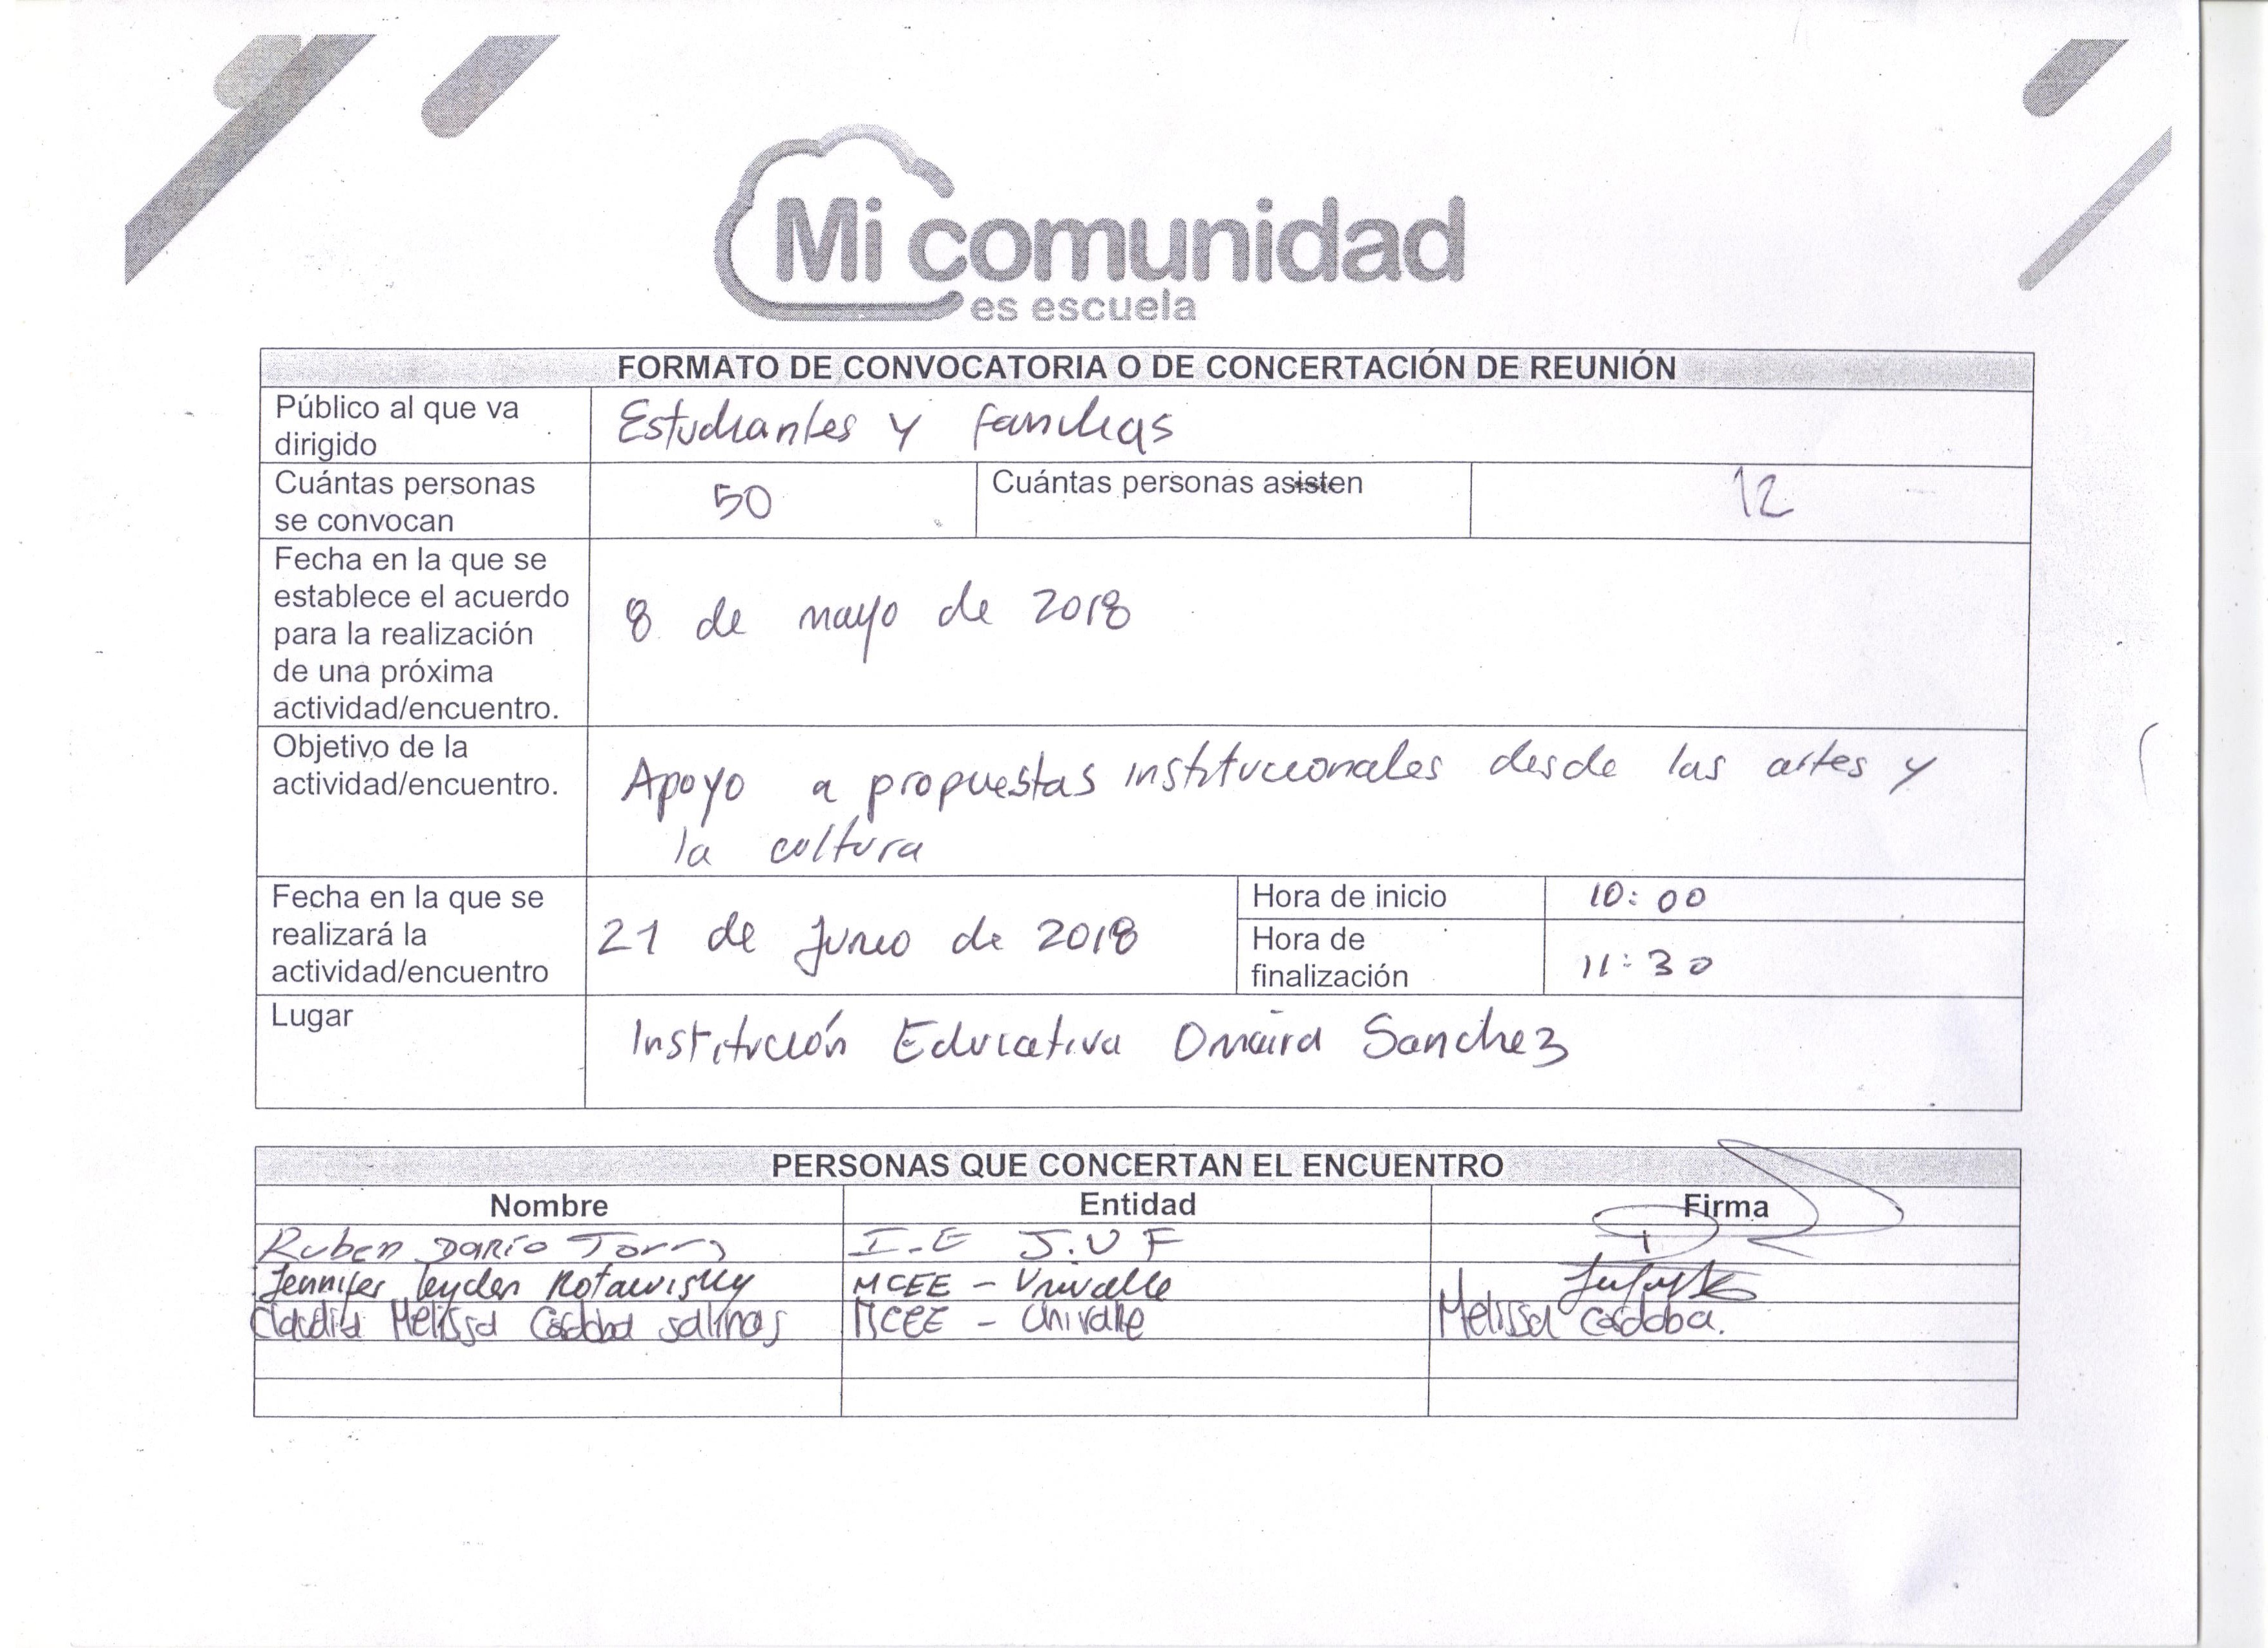 Mi comunidad
es escuela
FORMATO DE CONVOCATORIA O DE CONCERTACIÓN DE REUNIÓN
Público al que va
dirigido
Estudiantes y familias
Cuántas personas
se convocan
50
Cuántas personas asisten
12
Fecha en la que se
establece el acuerdo
para la realización
de una próxima
actividad/encuentro.
8 de mayo de 2018
Objetivo de la
actividad/encuentro.
Apoyo a propuestas institucionales desde las artes y
la cultura
Fecha en la que se
realizará la
actividad/encuentro
21 de Junio de 2018
Hora de inicio
10:00
Hora de
finalización
11:30
Lugar
Institución Educativa Omaira Sanchez
PERSONAS QUE CONCERTAN EL ENCUENTRO
Nombre Entidad Firma
Ruben DARÍO Torres I.E J.V F
Jennifer Leyden Rotawisky MCEE - Univalle
Claudia Melissa Córdoba salinas MCEE - Univalle Melissa Córdoba.